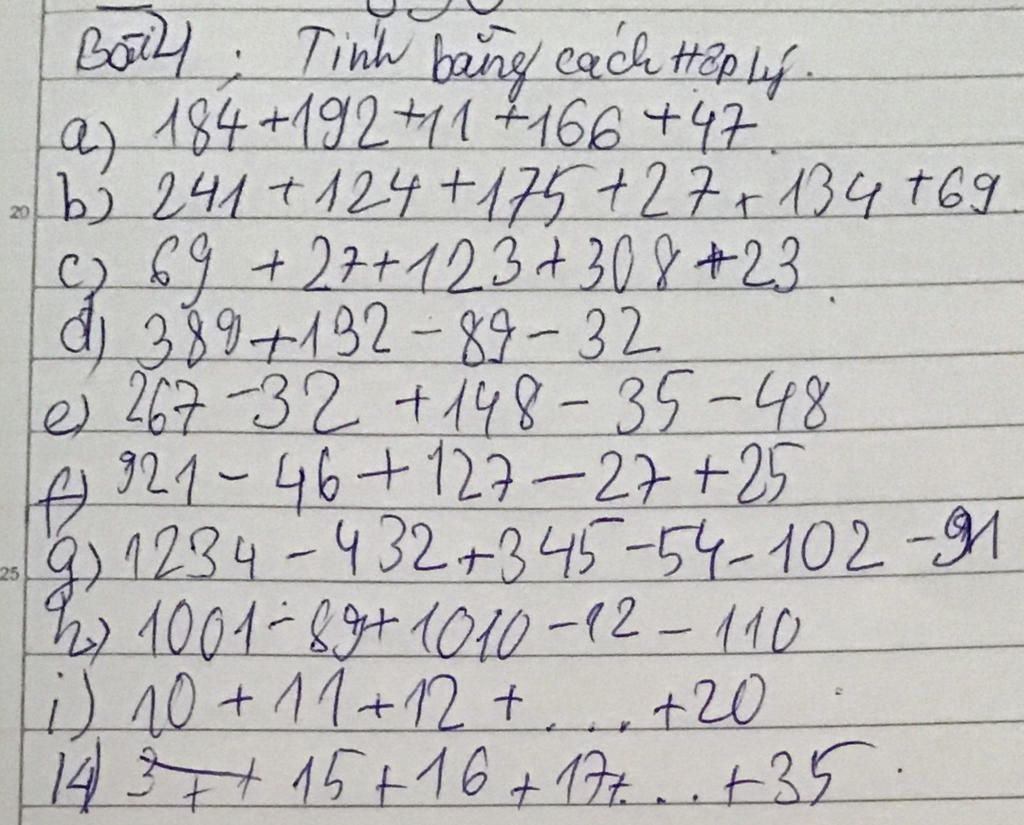 Bài 4 : Tính bằng cách Hợp lý.
a) 184 + 192 + 11 + 166 + 47
20 b) 241 + 124 + 175 + 27 + 134 + 69
c) 69 + 27 + 123 + 308 + 23
d) 389 + 132 - 89 - 32
e) 267 - 32 + 148 - 35 - 48
f) 921 - 46 + 127 - 27 + 25
25 g) 1234 - 432 + 345 - 54 - 102 - 91
h) 1001 - 89 + 1010 - 12 - 110
i) 10 + 11 + 12 + .... + 20
14) + 15 + 16 + 17 + ... + 35